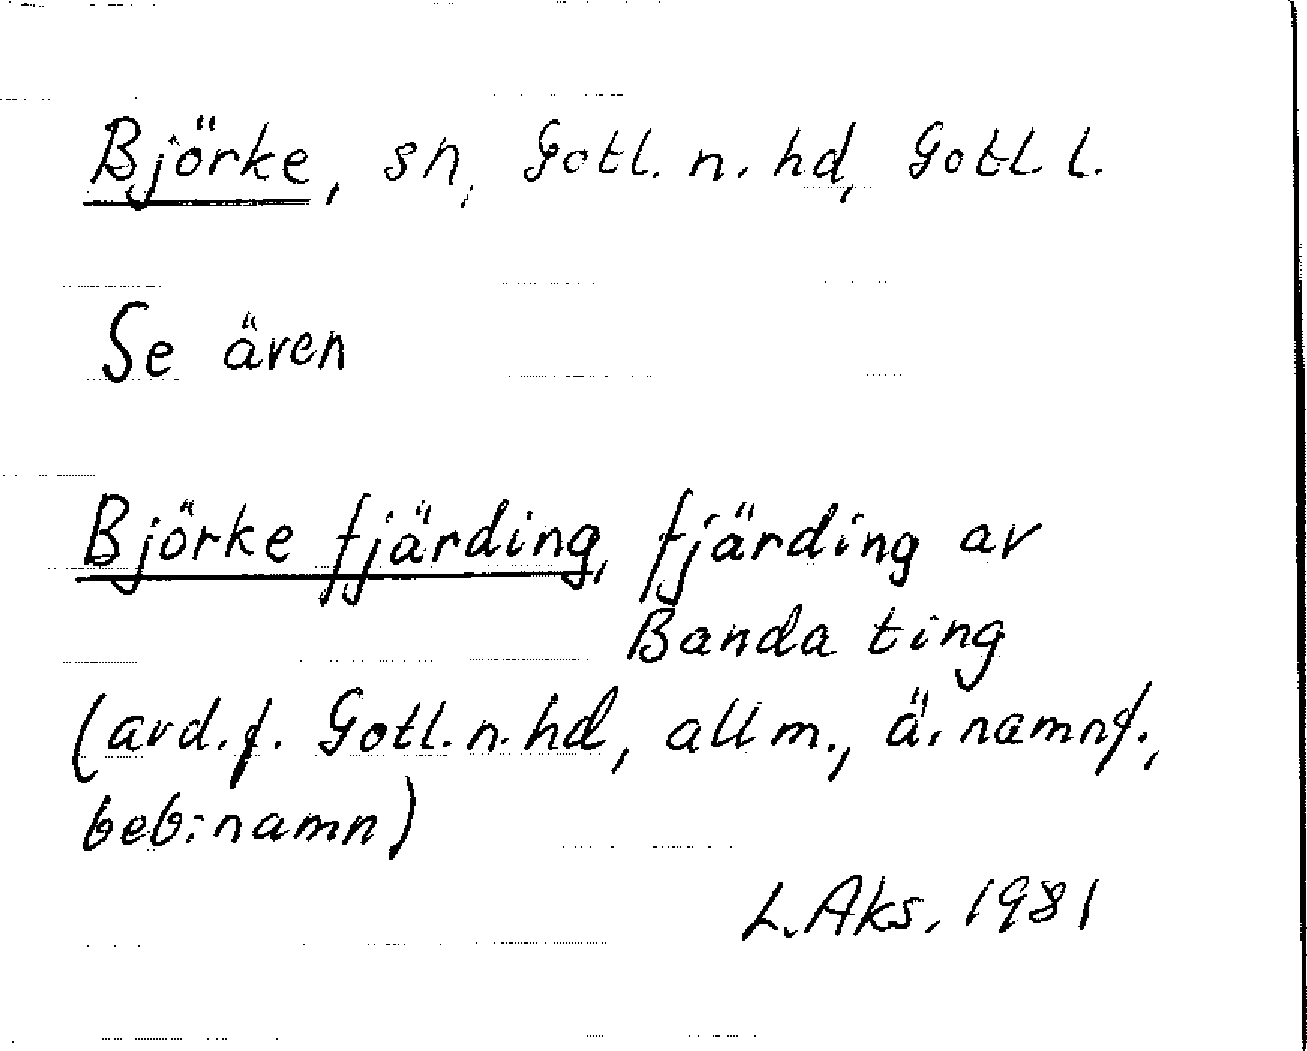 Björke, sn, Gotl. n. hd, Gotl. l.
Se även
Björke fjärding, fjärding av
Banda ting
(avd. f. Gotl. n. hd, allm., ä. namnf.,
beb:namn)
L. Aks. 1981